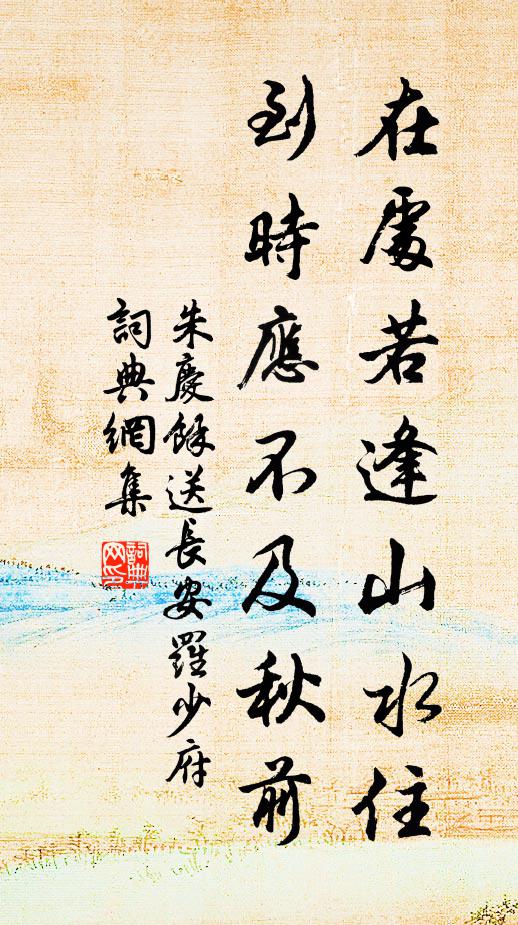 在處若逢山水住
到時應不及秋前
朱慶餘送長安羅少府
詞典網集
詞典
网印